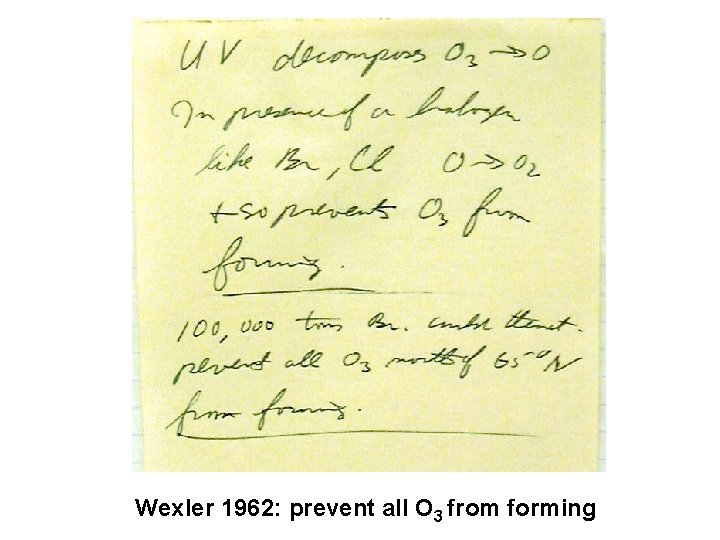 UV decomposes O3 → O
In presence of a halogen
like Br, Cl O → O2
+ so prevents O3 from
forming.
100,000 tons Br. could theoret.
prevent all O3 north of 65°N
from forming.
Wexler 1962: prevent all O3 from forming